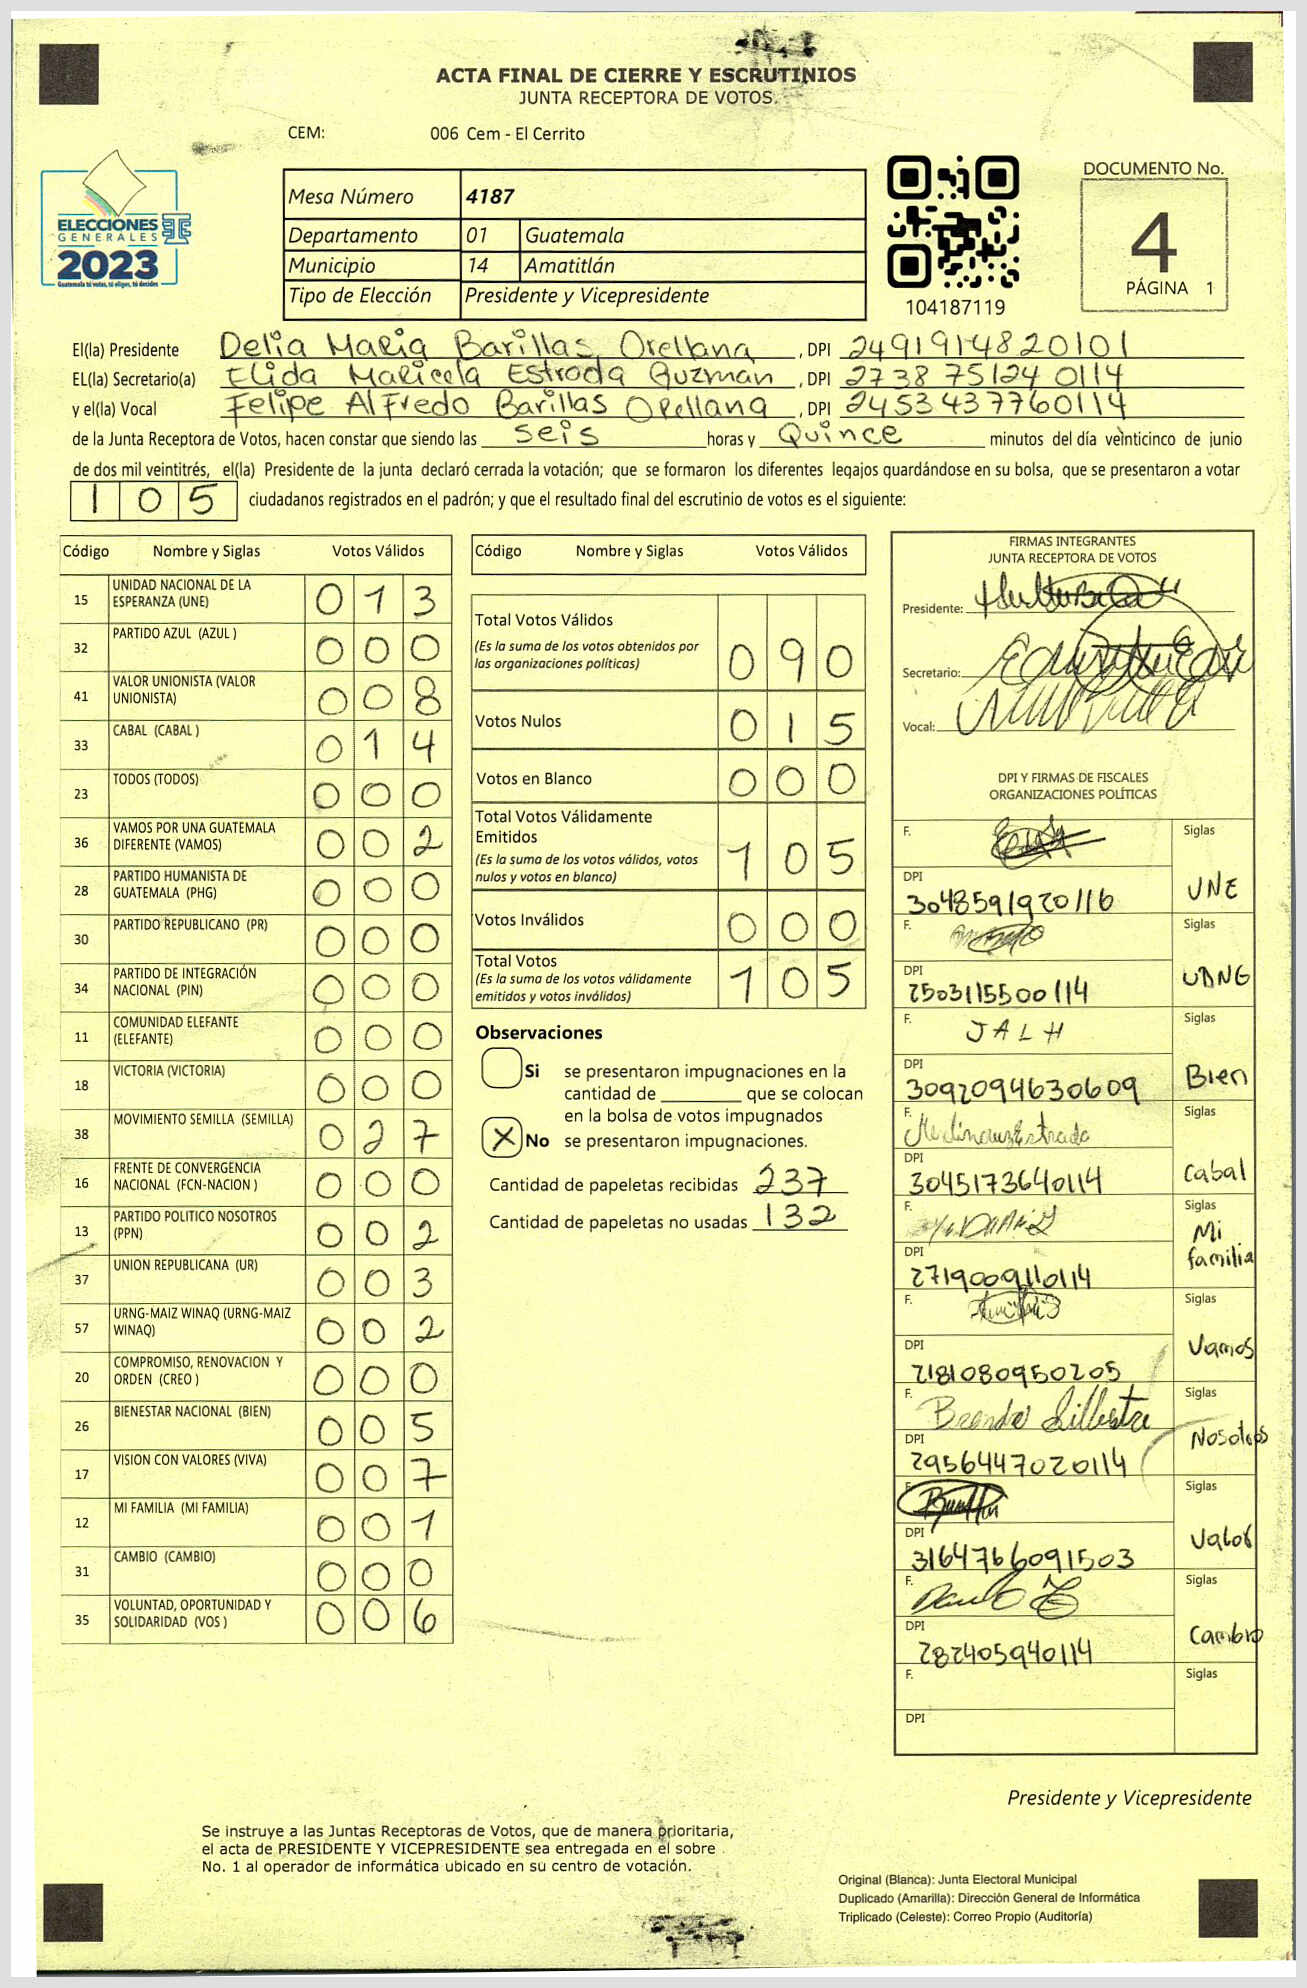 ACTA FINAL DE CIERRE Y ESCRUTINIOS
JUNTA RECEPTORA DE VOTOS.
CEM: 006 Cem - El Cerrito
ELECCIONES
GENERALES
2023
Guatemala tú votas, tú eliges, tú decides
Mesa Número 4187
Departamento 01 Guatemala
Municipio 14 Amatitlán
Tipo de Elección Presidente y Vicepresidente
104187119
DOCUMENTO No.
4
PÁGINA 1
El(la) Presidente Delia Maria Barillas Orellana, DPI 2491914820101
EL(la) Secretario(a) Elida Maricela Estrada Guzman, DPI 2738751240114
y el(la) Vocal Felipe Alfredo Barillas Orellana, DPI 2453437760114
de la Junta Receptora de Votos, hacen constar que siendo las seis horas y Quince minutos del día veinticinco de junio
de dos mil veintitrés, el(la) Presidente de la junta declaró cerrada la votación; que se formaron los diferentes legajos quardándose en su bolsa, que se presentaron a votar
105 ciudadanos registrados en el padrón; y que el resultado final del escrutinio de votos es el siguiente:
Código Nombre y Siglas Votos Válidos
15 UNIDAD NACIONAL DE LA ESPERANZA (UNE) 013
32 PARTIDO AZUL (AZUL ) 000
41 VALOR UNIONISTA (VALOR UNIONISTA) 008
33 CABAL (CABAL ) 014
23 TODOS (TODOS) 000
36 VAMOS POR UNA GUATEMALA DIFERENTE (VAMOS) 002
28 PARTIDO HUMANISTA DE GUATEMALA (PHG) 000
30 PARTIDO REPUBLICANO (PR) 000
34 PARTIDO DE INTEGRACIÓN NACIONAL (PIN) 000
11 COMUNIDAD ELEFANTE (ELEFANTE) 000
18 VICTORIA (VICTORIA) 000
38 MOVIMIENTO SEMILLA (SEMILLA) 027
16 FRENTE DE CONVERGENCIA NACIONAL (FCN-NACION ) 000
13 PARTIDO POLITICO NOSOTROS (PPN) 002
37 UNION REPUBLICANA (UR) 003
57 URNG-MAIZ WINAQ (URNG-MAIZ WINAQ) 002
20 COMPROMISO, RENOVACION Y ORDEN (CREO ) 000
26 BIENESTAR NACIONAL (BIEN) 005
17 VISION CON VALORES (VIVA) 007
12 MI FAMILIA (MI FAMILIA) 001
31 CAMBIO (CAMBIO) 000
35 VOLUNTAD, OPORTUNIDAD Y SOLIDARIDAD (VOS ) 006
Código Nombre y Siglas Votos Válidos
Total Votos Válidos 090
(Es la suma de los votos obtenidos por
las organizaciones políticas)
Votos Nulos 015
Votos en Blanco 000
Total Votos Válidamente
Emitidos 105
(Es la suma de los votos válidos, votos
nulos y votos en blanco)
Votos Inválidos 000
Total Votos 105
(Es la suma de los votos válidamente
emitidos y votos inválidos)
Observaciones
Si se presentaron impugnaciones en la
cantidad de ________ que se colocan
en la bolsa de votos impugnados
X No se presentaron impugnaciones.
Cantidad de papeletas recibidas 237
Cantidad de papeletas no usadas 132
FIRMAS INTEGRANTES
JUNTA RECEPTORA DE VOTOS
Presidente:
Secretario:
Vocal:
DPI Y FIRMAS DE FISCALES
ORGANIZACIONES POLÍTICAS
F. Siglas
DPI 3048591920116 UNE
F. Siglas
DPI 2503115500114 UDNG
F. JALH Siglas
DPI 3092094630609 Bien
F. Siglas
DPI 3045173640114 Cabal
F. Siglas
DPI 2719009110114 Mi familia
F. Siglas
DPI 2181080950205 Vamos
F. Brenda Sillestre Siglas
DPI 2956447020114 Nosotros
F. Siglas
DPI 3164766091503 Valor
F. Siglas
DPI 282405940114 Cambio
F. Siglas
DPI
Presidente y Vicepresidente
Se instruye a las Juntas Receptoras de Votos, que de manera prioritaria,
el acta de PRESIDENTE Y VICEPRESIDENTE sea entregada en el sobre
No. 1 al operador de informática ubicado en su centro de votación.
Original (Blanca): Junta Electoral Municipal
Duplicado (Amarilla): Dirección General de Informática
Triplicado (Celeste): Correo Propio (Auditoría)